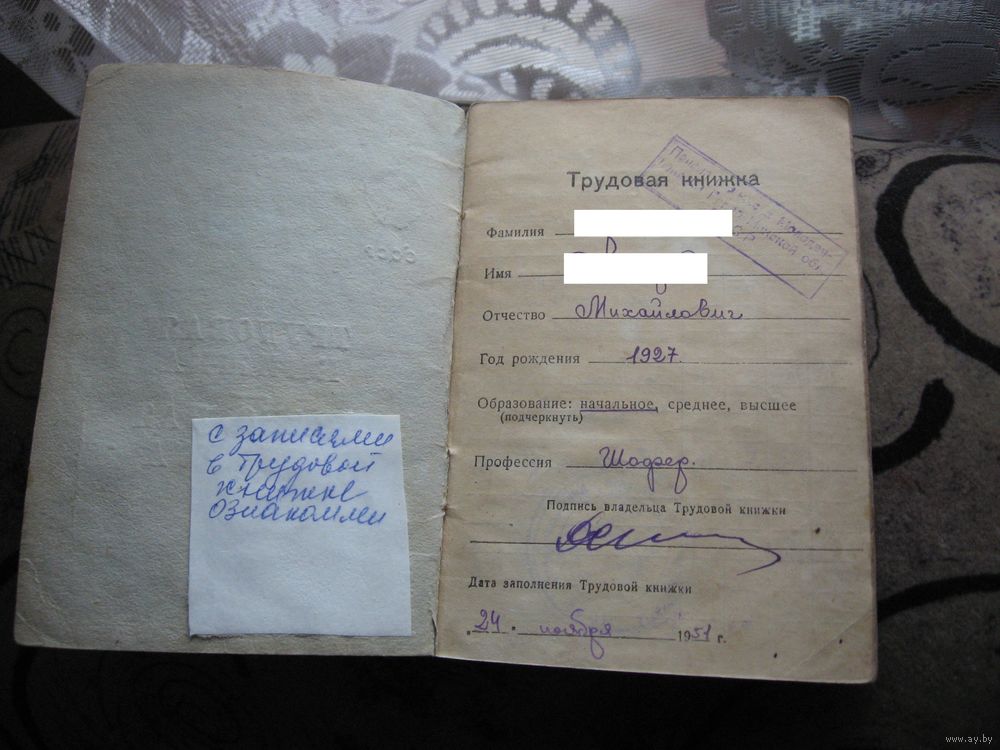 с записями
в Трудовой
книжке
ознакомлен
Трудовая книжка
Фамилия
Имя
Отчество Михайлович
Год рождения 1927
Образование: начальное, среднее, высшее
(подчеркнуть)
Профессия Шофер.
Подпись владельца Трудовой книжки
Дата заполнения Трудовой книжки
„24“ ноября 1951 г.
www.ay.by